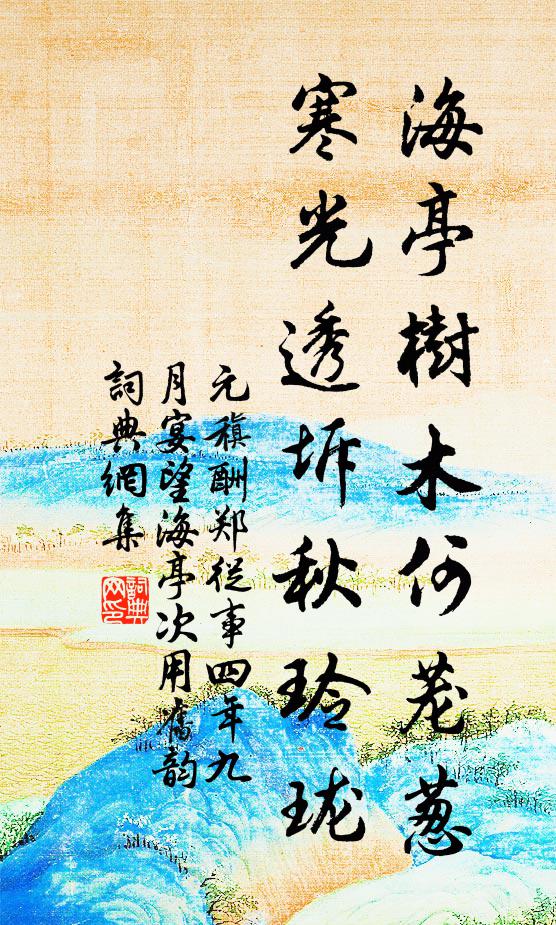 海亭樹木何茏葱
寒光透坼秋玲珑
元稹酬郑從事四年九
月宴望海亭次用舊韵
詞典網集
詞典